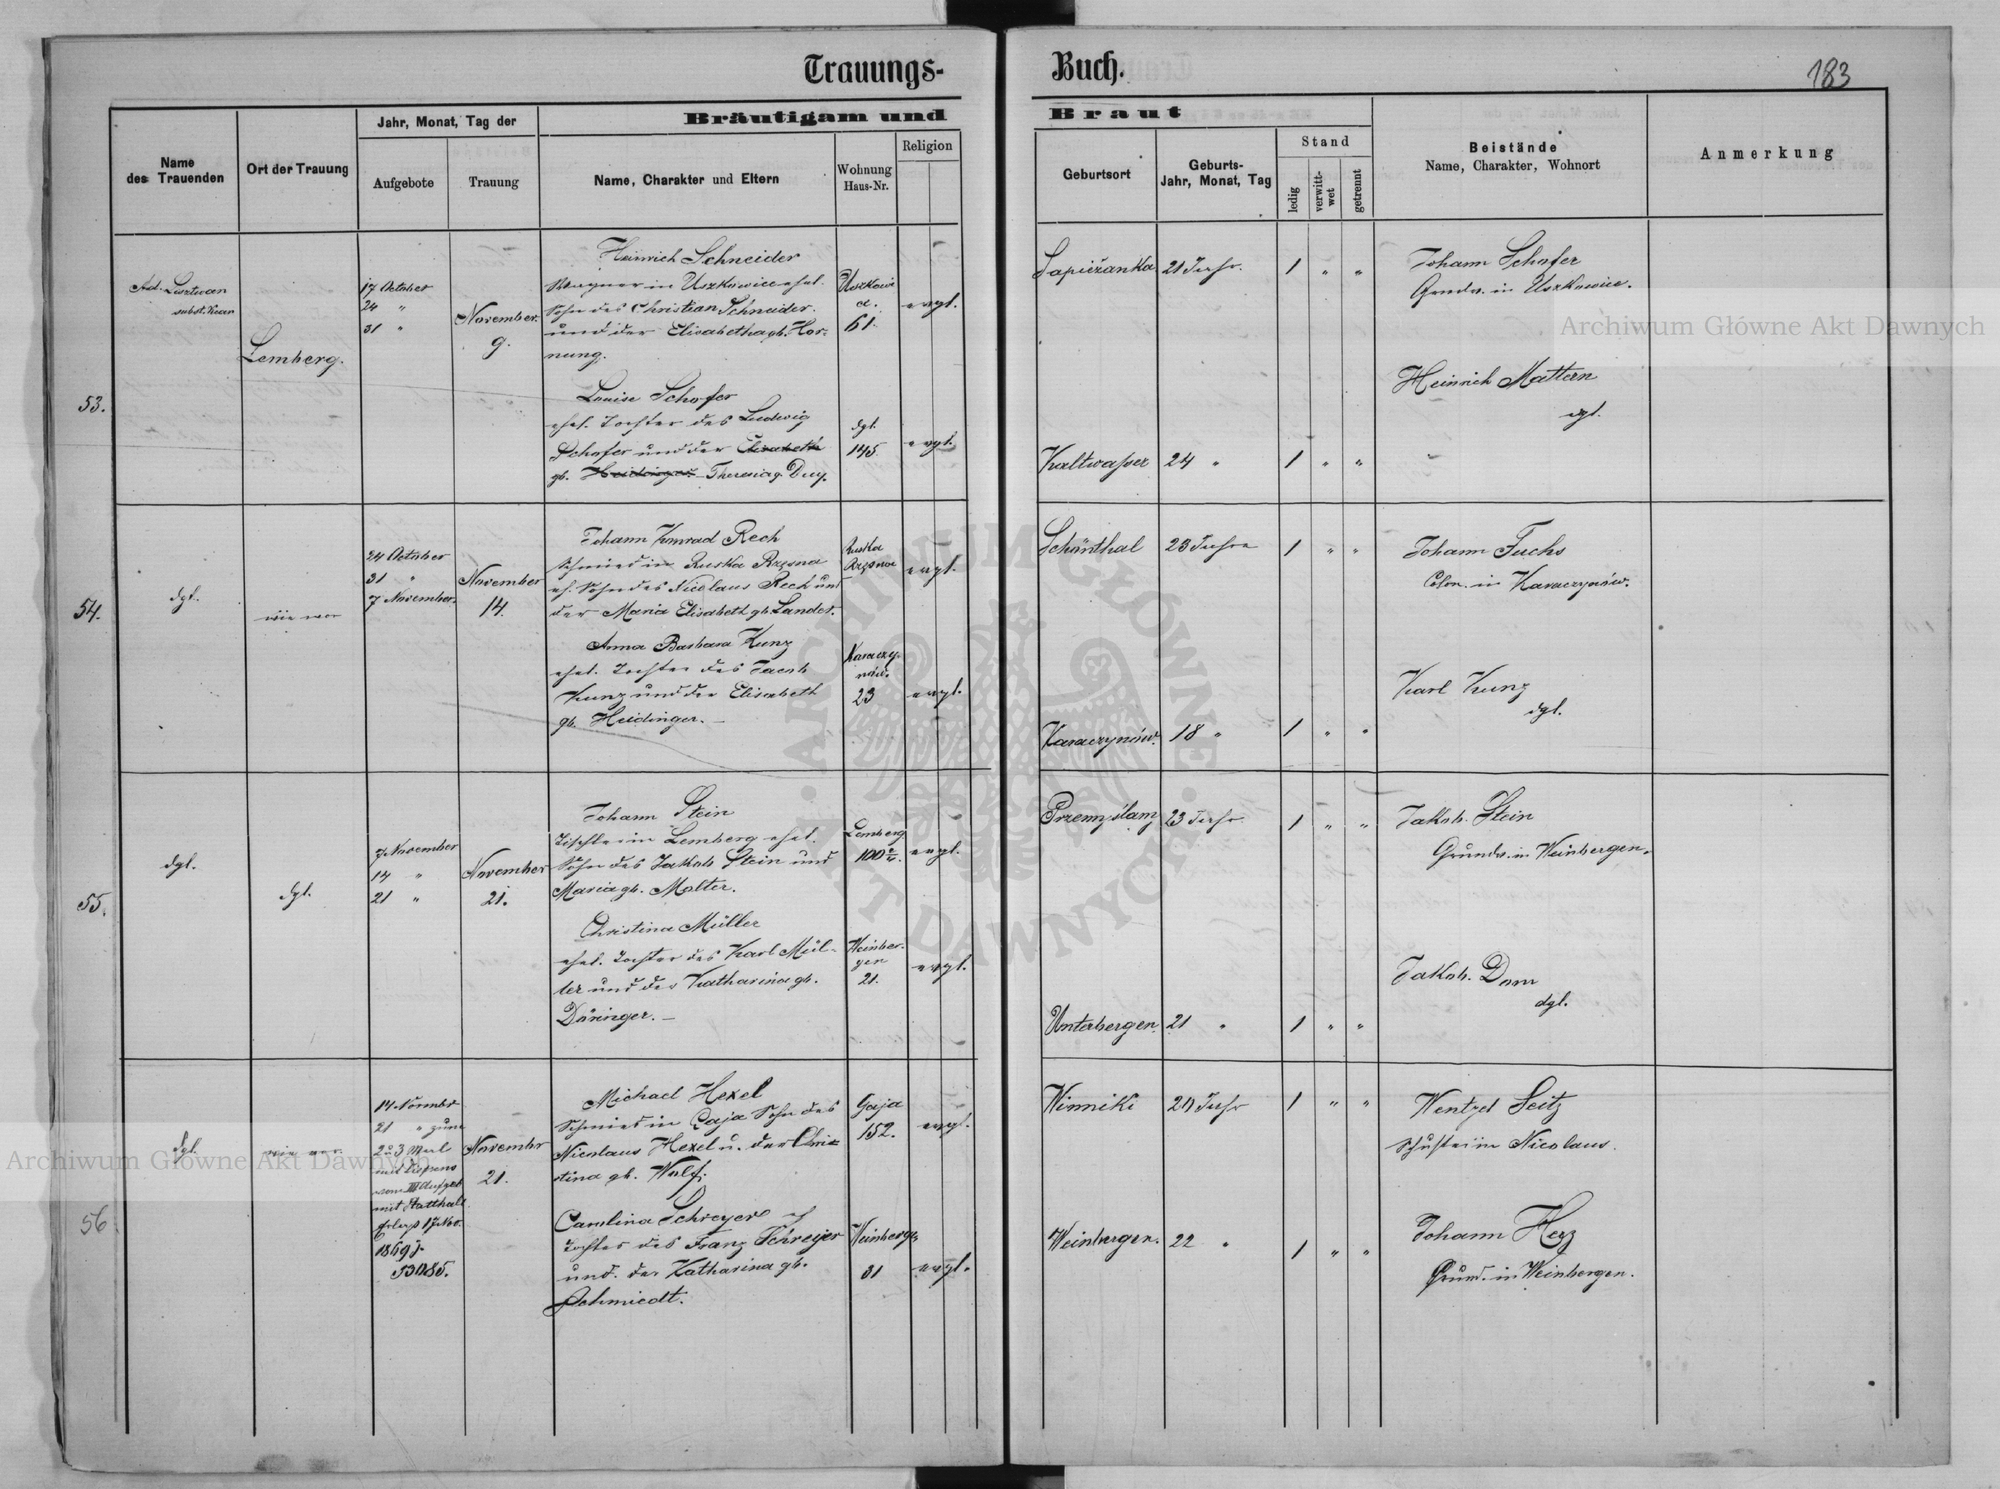 Trauungs- Buch.
183
Name des Trauenden
Ort der Trauung
Jahr, Monat, Tag der
Aufgebote
Trauung
Bräutigam und Braut
Name, Charakter und Eltern
Wohnung Haus-Nr.
Religion
Geburtsort
Geburts-
Jahr, Monat, Tag
Stand
ledig
verwitt-
wet
getrennt
Beistände
Name, Charakter, Wohnort
Anmerkung
53.
Lemberg.
17 October
24 "
31 "
November
9.
Heinrich Schneider
Wagner in Uszkowice ehel.
Sohn des Christian Schneider
und der Elisabetha gb. Hor-
nung.
61.
evgl.
Sapieżanka
21 Jahr.
1 " "
Johann Schofer
Grundw. in Uszkowice.
Heinrich Mattern
dgl.
Louise Schofer
ehel. Tochter des Ludwig
Schofer und der Elisabeth
gb. Theresia g. Duy.
dgl.
145
evgl.
Kaltwasser
24 "
1 " "
54.
dgl.
wie vor
24 October
31 "
7 November.
November
14.
Johann Konrad Rech
Schmied in Ruska Rzęsna
eh. Sohn des Nicolaus Rech und
der Maria Elisabeth gb. Landes.
Ruska
Rzęsna
evgl.
Schönthal
23 Jahre
1 " "
Johann Fuchs
Colon. in Karaczynów.
Anna Barbara Kunz
ehel. Tochter des Jacob
Kunz und der Elisabeth
gb. Heidinger. —
Karaczy-
nów.
23
evgl.
Karaczynów.
18 "
1 " "
Karl Kunz
dgl.
55.
dgl.
dgl.
7 November
14 "
21 "
November
21.
Johann Stein
Tischler in Lemberg ehel.
Sohn des Jakob Stein und
Maria gb. Molter.
Lemberg
100 2/4.
evgl.
Przemyślany
23 Jahr
1 " "
Jakob Stein
Grundw. in Weinbergen.
Christina Müller
ehel. Tochter des Karl Mül-
ler und der Katharina gb.
Döringer. —
Weinber-
gen
21.
evgl.
Unterbergen.
21 "
1 " "
Jakob Dorn
dgl.
56
dgl.
wie vor.
21 "
2 u 3 Mal
17 Nov.
53085.
November
21.
Michael Hexel
Schmied in Gaja Sohn des
Nicolaus Hexel u. der Chris-
tina gb. Wolf.
Gaja
152.
evgl.
Winniki
1 " "
Wentzel Seitz
Schuster in Nicolaus.
Carolina Schreyer eh
Tochter des Franz Schreyer
und der Katharina gb.
Schmiedt.
Weinbergen
31
evgl.
Weinbergen.
22 "
1 " "
Johann Herz
Grund. in Weinbergen.
Archiwum Główne Akt Dawnych
Archiwum Główne Akt Dawnych
ARCHIWUM GŁÓWNE AKT DAWNYCH